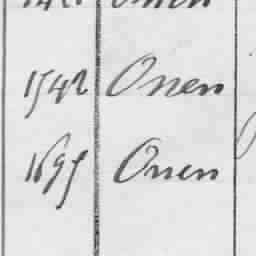 1542 Onen
1695 Onen